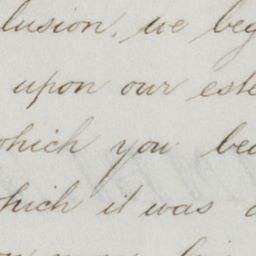 lusion, we beg
upon our este
which you be
hich it was